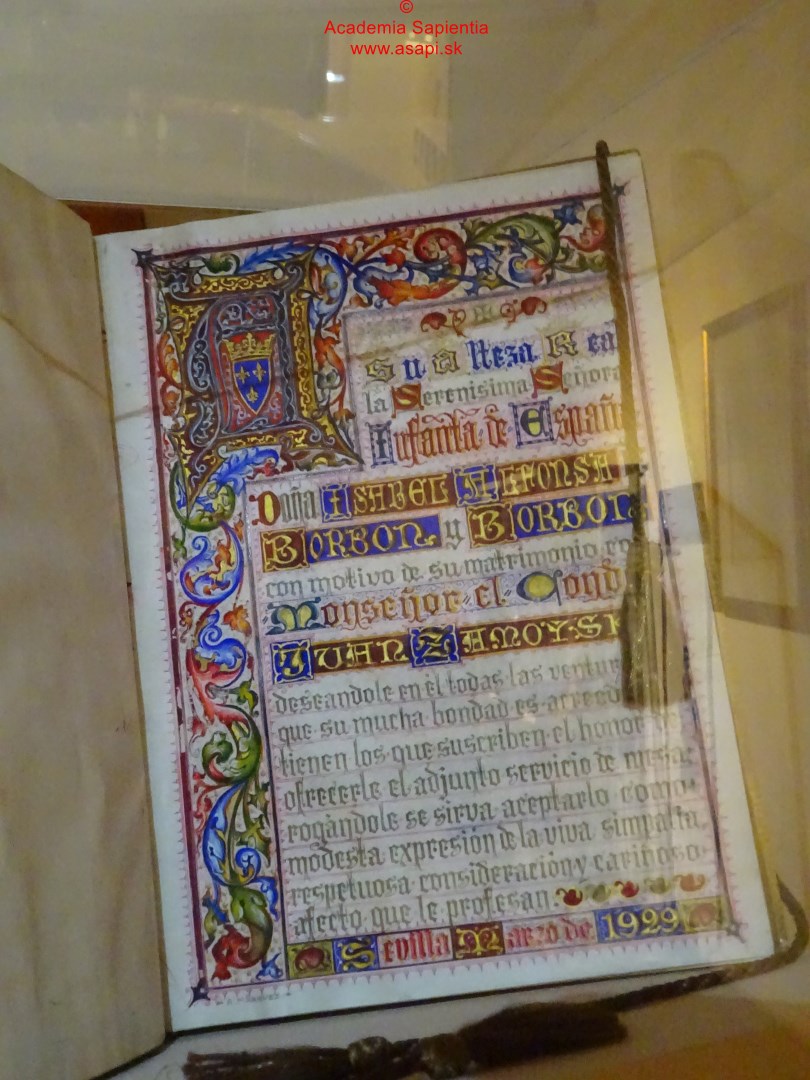 ©
Academia Sapientia
www.asapi.sk
A
Su Alteza Rea
la Serenisima Señora
Infanta de España
Doña Isabel Alfonsa
Borbon y Borbon
con motivo de su matrimonio co
Monseñor el Cond
Juan Zamoysk
deseandole en él todas las ventur
que su mucha bondad es acreed
tienen los que suscriben el honor de
ofrecerle el adjunto servicio de mesa:
rogándole se sirva aceptarlo como
modesta expresión de la viva simpatia,
respetuosa consideración y cariñoso
afecto que le profesan.
Sevilla Marzo de 1929